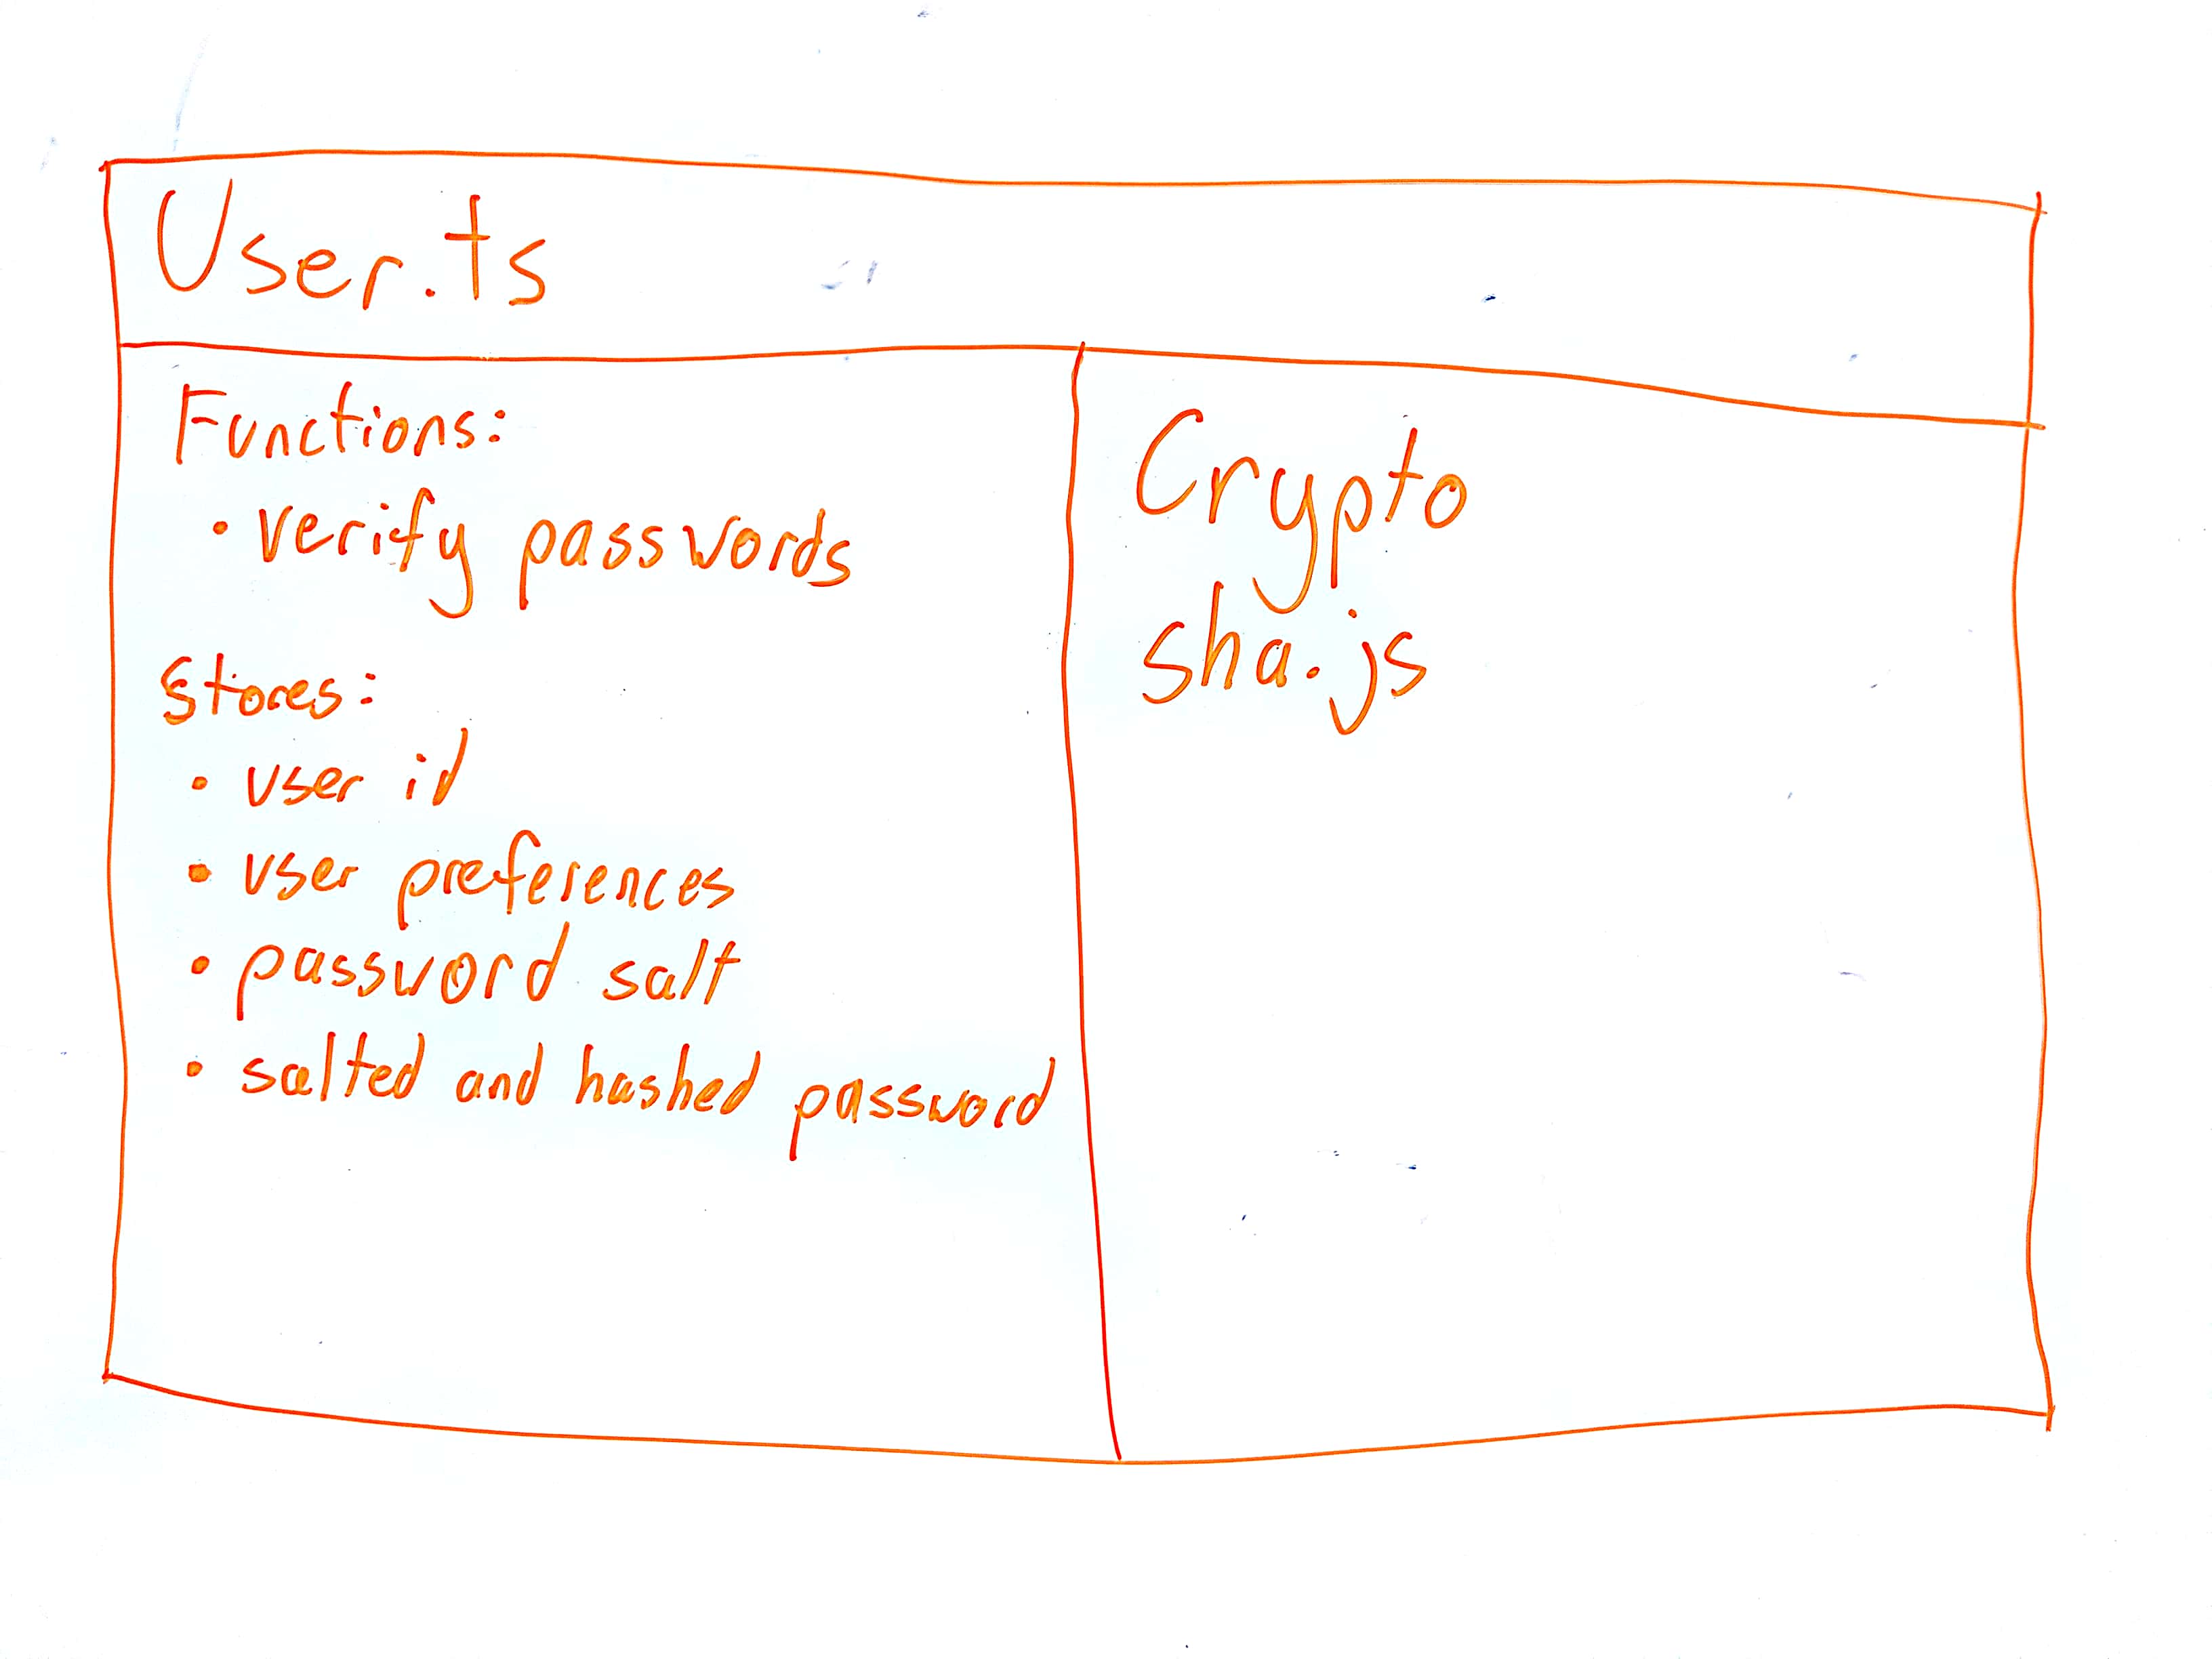 User.ts
Functions:
• verify passwords
Stores:
• user id
• user preferences
• password salt
• salted and hashed password
Crypto
sha.js